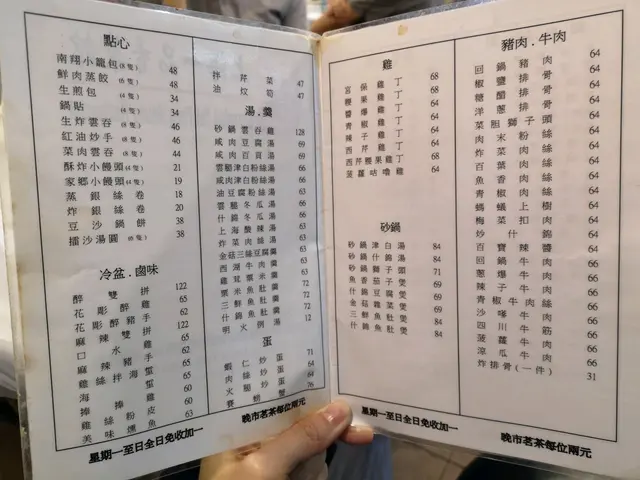 點心
南翔小籠包(8隻) 48
鮮肉蒸餃(6隻) 48
生煎包(4隻) 34
鍋貼(4隻) 34
生炸雲吞(8隻) 46
紅油炒手(8隻) 46
菜肉雲吞(8隻) 44
酥炸小饅頭(4隻) 21
家鄉小饅頭(4隻) 19
蒸銀絲卷 18
炸銀絲卷 20
豆沙鍋餅 38
擂沙湯圓(8隻) 38
冷盆.鹵味
醉雙拼 122
花彫醉雞 65
花彫醉豬手 62
麻辣雙拼 122
口水雞 65
麻辣豬手 62
雞絲拌海蜇 65
海蜇 65
捧捧雞 60
雞絲粉皮 60
美味燻魚 63
拌芹菜 47
油炆筍 47
湯.羹
砂鍋雲吞雞 128
咸肉豆腐湯 69
咸肉百頁湯 69
雲腿津白粉絲湯 69
咸肉津白粉絲湯 66
油豆腐粉絲湯 66
什錦冬瓜湯 66
上海酸辣湯 63
炸菜肉絲湯 63
金菇三絲豆腐羹 63
西湖牛肉羹 63
雞茸魚肚羹 72
粟米魚肚羹 72
什錦魚肚羹 72
明火例湯 12
蛋
蝦仁炒蛋 71
火腿炒蛋 64
賽螃蟹 76
星期一至日全日免收加一
晚市茗茶每位兩元
雞
宮保雞丁 68
腰果雞丁 68
醬爆雞丁 64
青椒雞丁 64
辣子雞丁 64
西芹雞丁 64
西芹腰果雞丁 68
菠蘿咕嚕雞 64
砂鍋
砂鍋津白湯 84
砂鍋什錦湯 84
砂鍋獅子頭 71
魚香茄子煲 69
什錦豆腐煲 69
金菇雞肚煲 69
三鮮魚肚煲 84
什錦魚肚煲 84
豬肉.牛肉
回鍋豬肉 64
椒鹽排骨 64
糖醋排骨 64
洋蔥排骨 64
菜胆獅子頭 64
肉末粉絲 64
炸菜肉絲 64
百葉肉絲 64
魚香肉絲 64
青椒肉絲 64
螞蟻上樹 64
梅菜扣肉 64
炒什錦 64
百寶辣醬 64
回鍋牛肉 66
蔥爆牛肉 66
辣子牛肉 66
青椒牛肉絲 66
沙嗲牛肉 66
四川牛筋 66
菠蘿牛肉 66
涼瓜牛肉 66
炸排骨(一件) 31
星期一至日全日免收加一
晚市茗茶每位兩元